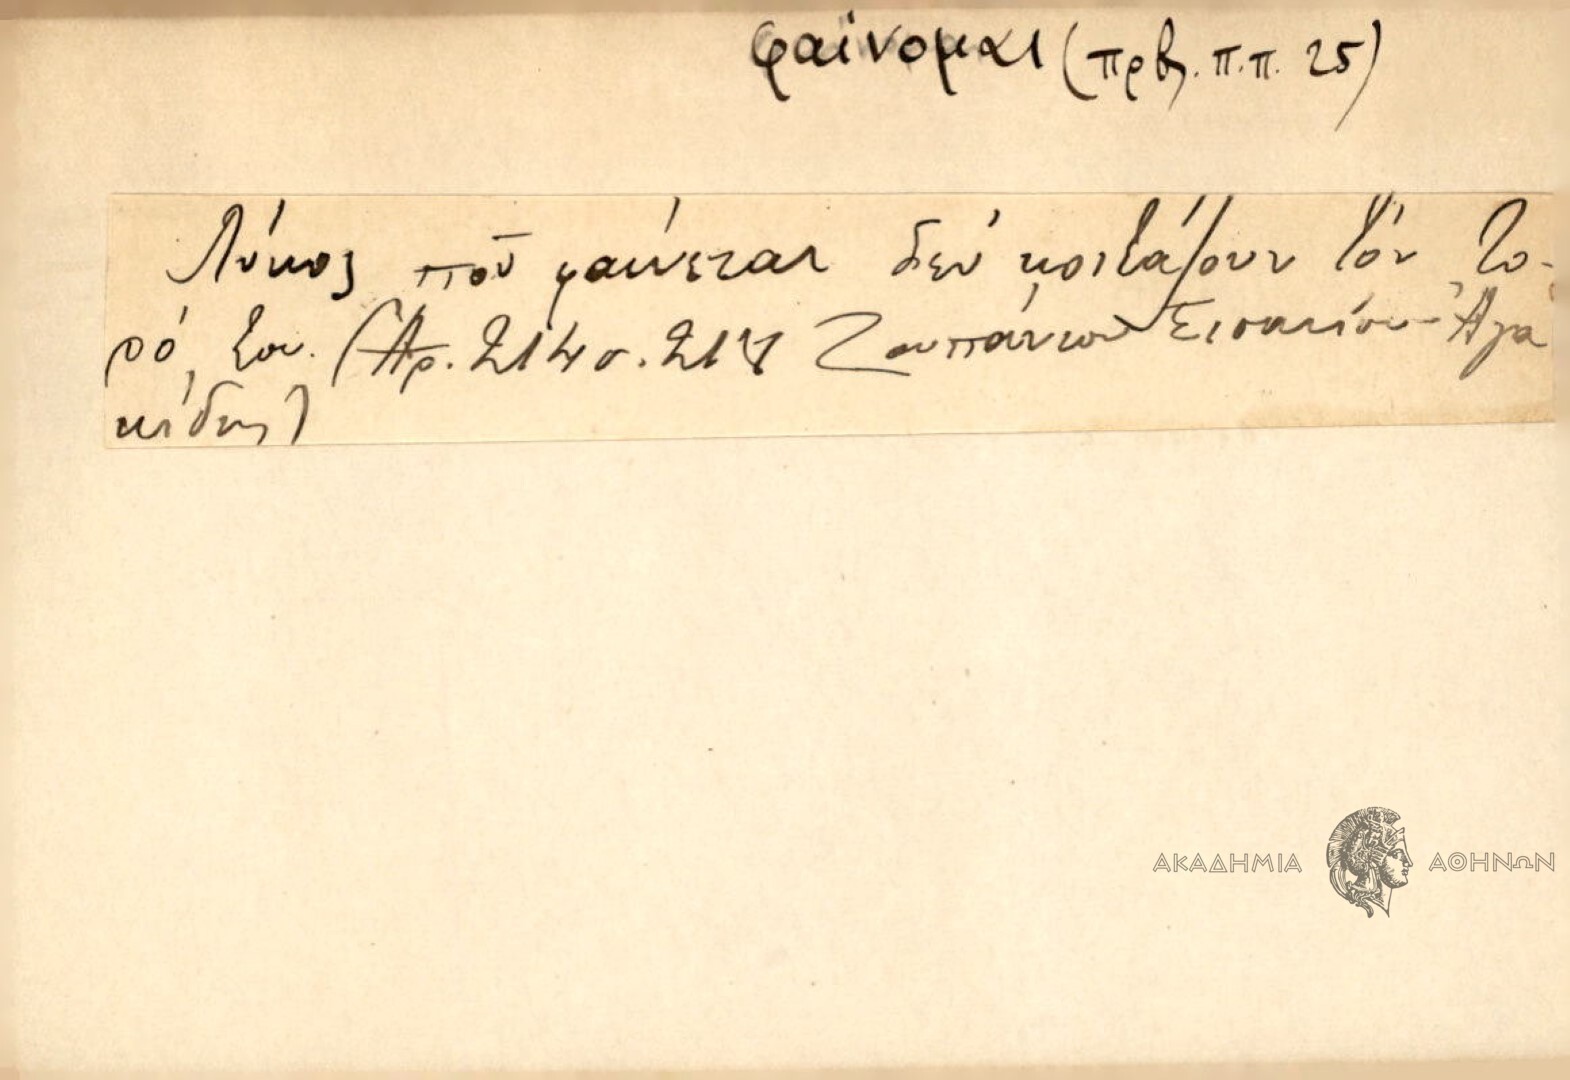 φαίνομαι (πρβ. π.π. 25)
Λύκος ποῦ φαίνεται δεν κοιτάζουν τόν το-
ρό του. (Ἀρ. 214 σ. 217 Ζουπάνιον Σισανίου Ἀγα
κίδης)
ΑΚΑΔΗΜΙΑ ΑΘΗΝΩΝ